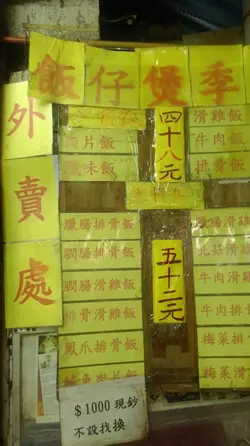 飯仔煲季
外賣處
四十八元
片飯
未飯
滑雞飯
牛肉飯
排骨飯
五十二元
臘腸排骨飯
臘腸滑雞飯
膶腸排骨飯
膶腸滑雞飯
排骨滑雞飯
鳳爪排骨飯
肉片飯
北菇滑雞
牛肉滑雞
牛肉排骨
梅菜排骨
梅菜滑
$1000 現鈔
不設找換